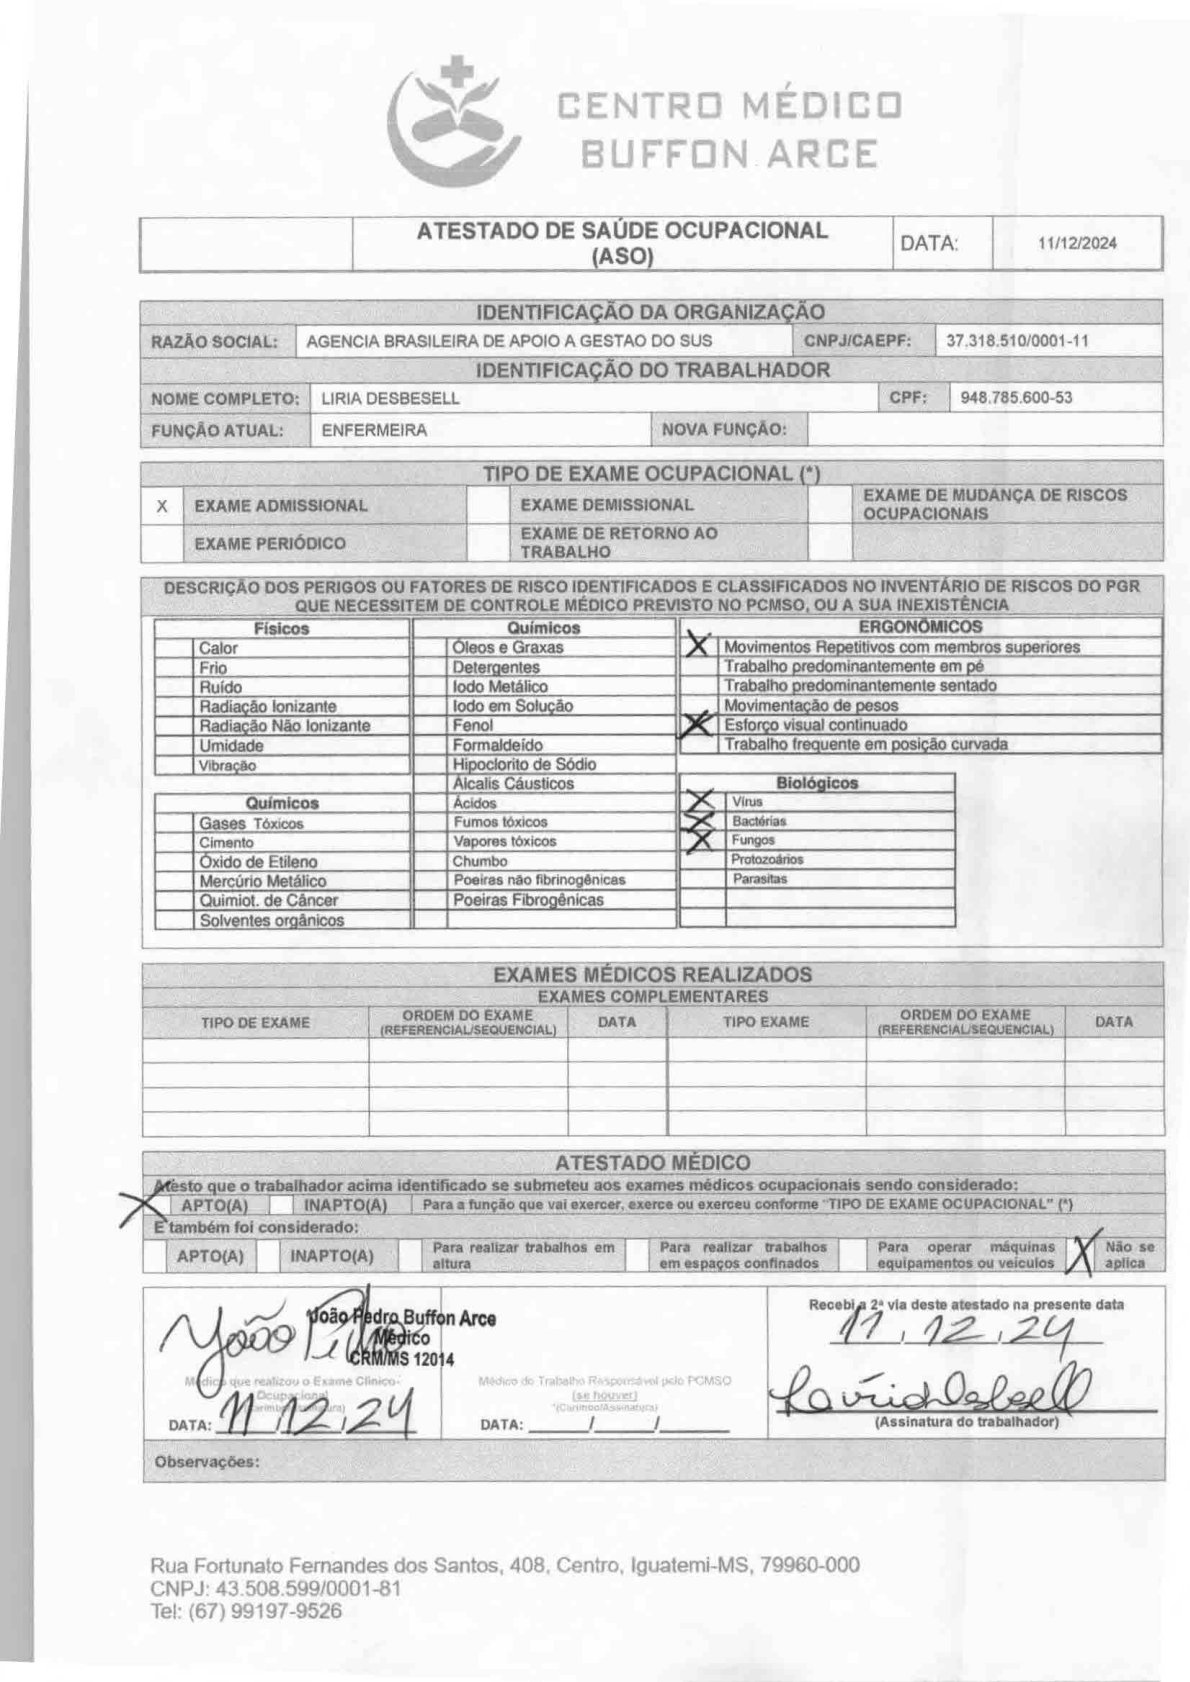 CENTRO MÉDICO
BUFFON ARCE
ATESTADO DE SAÚDE OCUPACIONAL
(ASO)
DATA:
11/12/2024
IDENTIFICAÇÃO DA ORGANIZAÇÃO
RAZÃO SOCIAL: AGENCIA BRASILEIRA DE APOIO A GESTAO DO SUS CNPJ/CAEPF: 37.318.510/0001-11
IDENTIFICAÇÃO DO TRABALHADOR
NOME COMPLETO: LIRIA DESBESELL CPF: 948.785.600-53
FUNÇÃO ATUAL: ENFERMEIRA NOVA FUNÇÃO:
TIPO DE EXAME OCUPACIONAL (*)
X EXAME ADMISSIONAL
EXAME DEMISSIONAL
EXAME DE MUDANÇA DE RISCOS
OCUPACIONAIS
EXAME PERIÓDICO
EXAME DE RETORNO AO
TRABALHO
DESCRIÇÃO DOS PERIGOS OU FATORES DE RISCO IDENTIFICADOS E CLASSIFICADOS NO INVENTÁRIO DE RISCOS DO PGR
QUE NECESSITEM DE CONTROLE MÉDICO PREVISTO NO PCMSO, OU A SUA INEXISTÊNCIA
Físicos
Calor
Frio
Ruído
Radiação Ionizante
Radiação Não Ionizante
Umidade
Vibração
Químicos
Gases Tóxicos
Cimento
Óxido de Etileno
Mercúrio Metálico
Quimiot. de Câncer
Solventes orgânicos
Químicos
Óleos e Graxas
Detergentes
Iodo Metálico
Iodo em Solução
Fenol
Formaldeído
Hipoclorito de Sódio
Álcalis Cáusticos
Ácidos
Fumos tóxicos
Vapores tóxicos
Chumbo
Poeiras não fibrinogênicas
Poeiras Fibrogênicas
ERGONÔMICOS
X Movimentos Repetitivos com membros superiores
Trabalho predominantemente em pé
Trabalho predominantemente sentado
Movimentação de pesos
X Esforço visual continuado
Trabalho frequente em posição curvada
Biológicos
X Vírus
X Bactérias
X Fungos
Protozoários
Parasitas
EXAMES MÉDICOS REALIZADOS
EXAMES COMPLEMENTARES
TIPO DE EXAME
ORDEM DO EXAME
(REFERENCIAL/SEQUENCIAL)
DATA
TIPO EXAME
ORDEM DO EXAME
(REFERENCIAL/SEQUENCIAL)
DATA
ATESTADO MÉDICO
Atesto que o trabalhador acima identificado se submeteu aos exames médicos ocupacionais sendo considerado:
X APTO(A) INAPTO(A) Para a função que vai exercer, exerce ou exerceu conforme "TIPO DE EXAME OCUPACIONAL" (*)
E também foi considerado:
APTO(A)
INAPTO(A)
Para realizar trabalhos em
altura
Para realizar trabalhos
em espaços confinados
Para operar máquinas
equipamentos ou veículos
X Não se
aplica
João Pedro
João Pedro Buffon Arce
Médico
CRM/MS 12014
Médico que realizou o Exame Clínico-
Ocupacional
DATA: 11/12/24
Médico do Trabalho Responsável pelo PCMSO
(se houver)
(Carimbo/Assinatura)
DATA: ___/___/___
Recebi a 2ª via deste atestado na presente data
11, 12, 24
(Assinatura do trabalhador)
Observações:
Rua Fortunato Fernandes dos Santos, 408, Centro, Iguatemi-MS, 79960-000
CNPJ: 43.508.599/0001-81
Tel: (67) 99197-9526